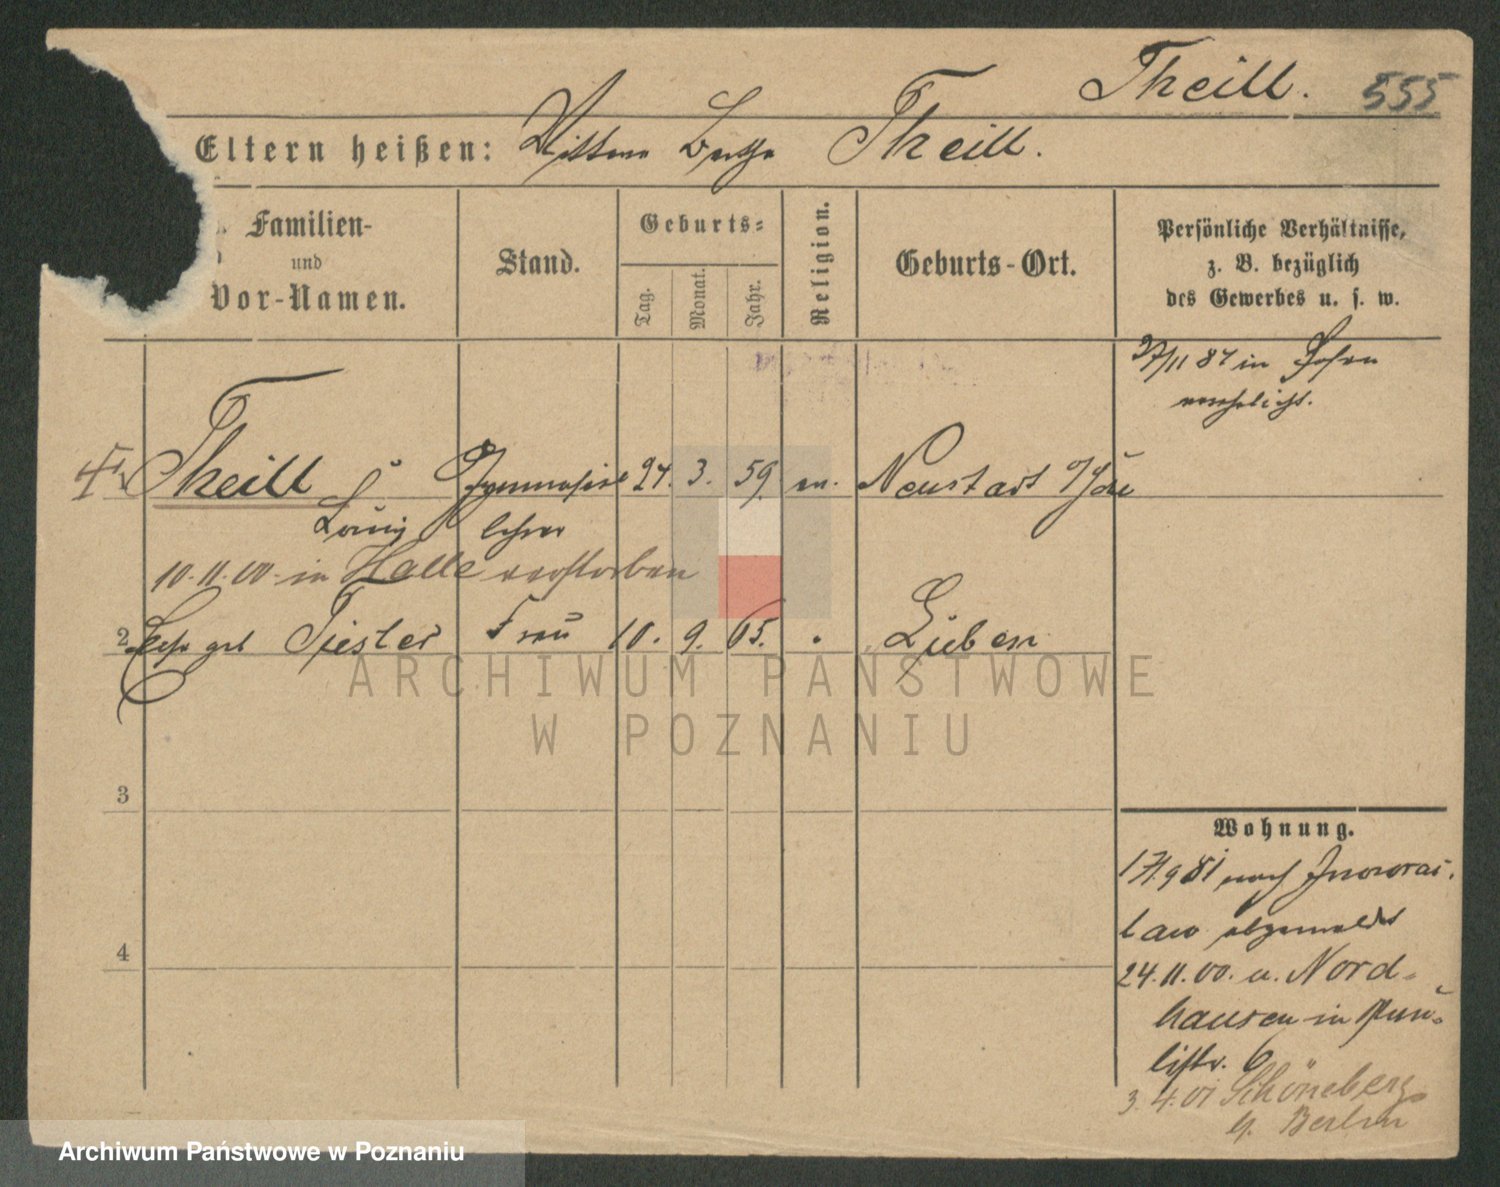 Theill. 555
Eltern heißen: Theill.
Familien-
und
Vor-Namen.
Stand.
Geburts-
Tag.
Monat.
Jahr.
Religion.
Geburts-Ort.
Persönliche Verhältnisse,
z. B. bezüglich
des Gewerbes u. s. w.
in Posen
verehelicht.
Theill Gymnasial 24. 3. 59.
Louis lehrer
10.11.00 in Halle verstorben
2 geb Tiester Frau 10. 9. 65. Lieben
3
4
Wohnung.
nach Inowraz-
law abgemeldet
24.11.00. v. Nord-
hausen in Pau-
listr. 6
3.4.01 Schöneberg
b. Berlin
ARCHIWUM PAŃSTWOWE
W POZNANIU
Archiwum Państwowe w Poznaniu